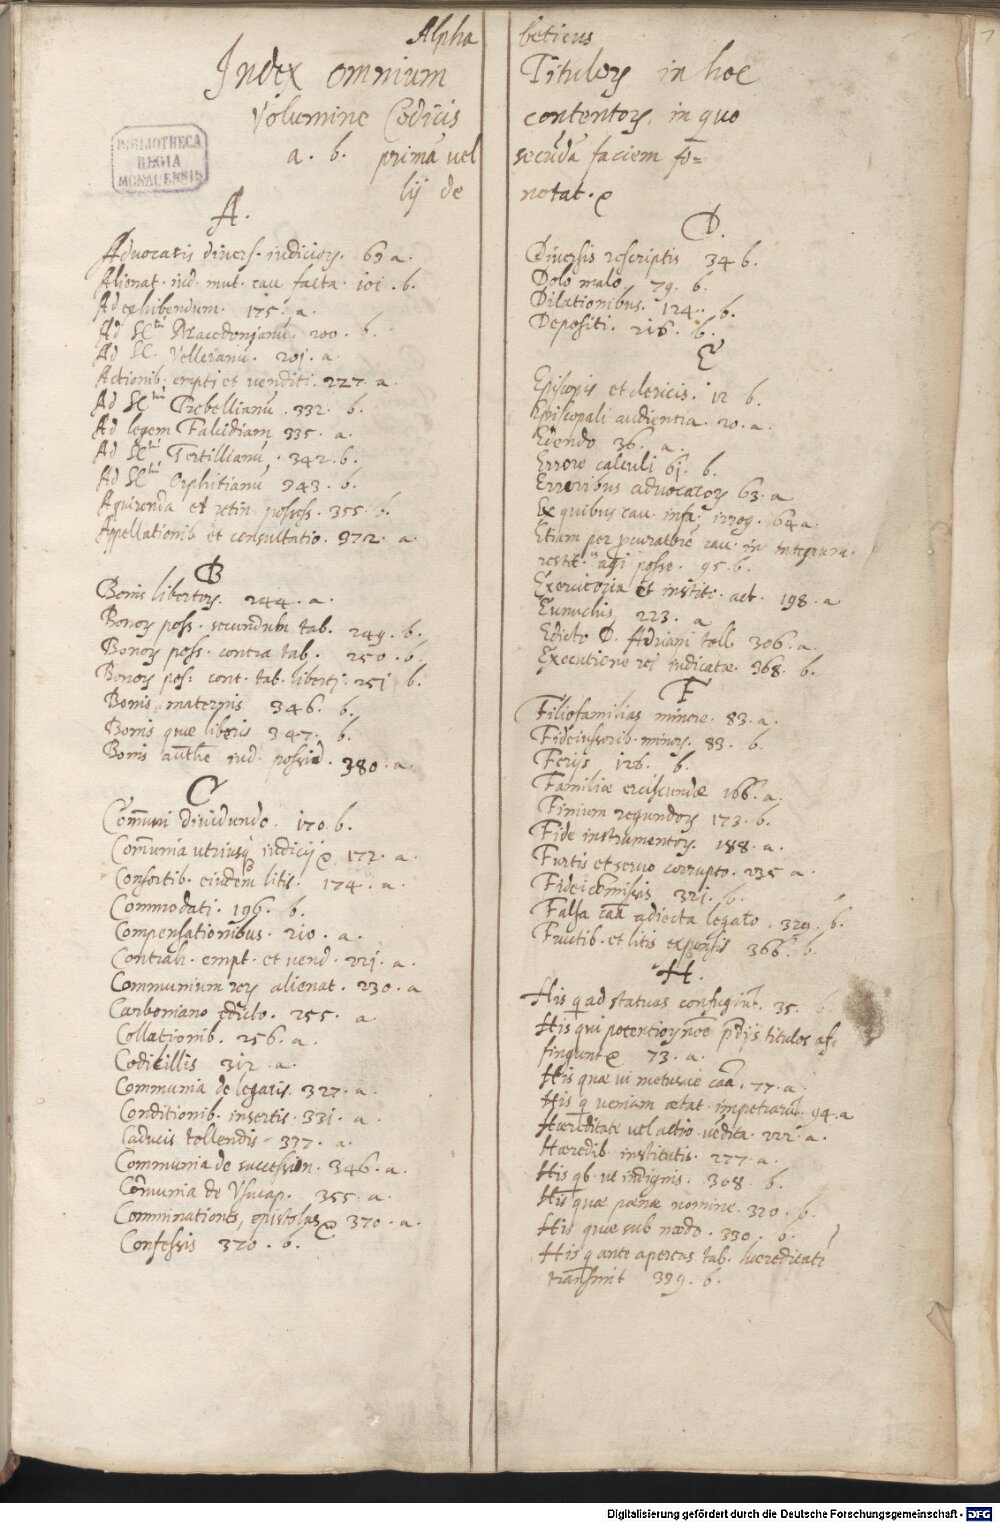 Alpha beticus
Index omnium Titulorꝝ in hoc
Volumine Codicis contentorꝝ, in quo
a. b. primā vel secūdā faciem fo=
lij de notat.
BIBLIOTHECA
REGIA
MONACENSIS
A.
Advocatis divers. iudiciorꝝ. 62 a.
Alienat. iud. mut. cau facta. 101. b.
Ad exhibendum. 175. a.
Ad SCtū Macedonianū 200. b.
Ad SC. Velleianū. 201. a.
Actionib. empti et venditi. 227. a.
Ad SCtū Trebellianū. 332. b.
Ad legem Falcidiam 335. a.
Ad SCtū Tertillianū. 342. b.
Ad SCtū Orphitianū 343. b.
Aquirenda et retin. possess. 355. b.
Appellationib et consultatio. 372. a
B
Bonis libertorꝝ. 244. a.
Bonorꝝ poss. secundum tab. 249. b.
Bonorꝝ poss. contra tab. 250. b.
Bonorꝝ pos: cont. tab. liberti. 251 b.
Bonis maternis 346. b.
Bonis quae liberis 347. b.
Bonis iud. possid. 380. a.
C
Com̄uni dividundo. 170 b.
Com̄unia utriusq iudicij 172. a.
Consortib. eiusdem litis. 174. a.
Commodati. 196. b.
Compensationibus. 210. a.
Contrah. empt. et vend. 221. a.
Communium rerꝝ alienat. 230. a
Carboniano Edicto. 255. a.
Collationib. 256. a.
Codicillis 312. a.
Communia de legatis. 327. a.
Conditionib. insertis. 331. a.
Caducis tollendis. 337. a.
Communia de succession. 346. a.
Com̄unia de Usucap. 355. a.
Comminationes, epistolas 370. a.
Confessis 370. b.
D.
Diversis rescriptis 34 b.
Dolo malo 79. b.
Dilationibus. 124. b.
Depositi. 216. b.
E
Episcopis et clericis. 12 b.
Episcopali audientia. 20. a.
Edendo 36. a
Errore calculi 61. b.
Erroribus advocatorꝝ 63. a
Ex quibus cau. infa. irrog. 64 a.
Etiam per cau. in integrum
restit. agi posse. 95. b.
Exercitoria et institit. act. 198. a
Eunuchis 223. a
Edicto D. Adriani toll 306. a.
Executione rei iudicatae. 368. b.
F
Filiofamilias minore. 83. a.
Fideiussorib. minorꝝ. 83. b.
Ferijs 126. b.
Familiae erciscundae 166. a.
Finium regundorꝝ 173. b.
Fide instrumentorꝝ. 188. a.
Furtis et servo corrupto. 235 a.
Fideicom̄issis 321. b.
Falsa cāa adiecta legato. 329. b.
Fructib. et litis expensis 366. b.
H.
His q ad statuas confugiūt. 35. b.
His qui potentiorꝝ noīe titulos af=
fingunt 73. a.
His quae vi metusve cāa. 77. a.
His q veniam aetat. impetrarūt. 94. a
Haereditate vel actio. vēdita. 222. a.
Haeredib. institutis. 277. a.
His qb. ut indignis. 308. b.
His quae poenae nomine. 320. b.
His quae sub modo. 330. b.
His q ante apertas tab. haereditatē
transmit 339. b.
Digitalisierung gefördert durch die Deutsche Forschungsgemeinschaft - DFG